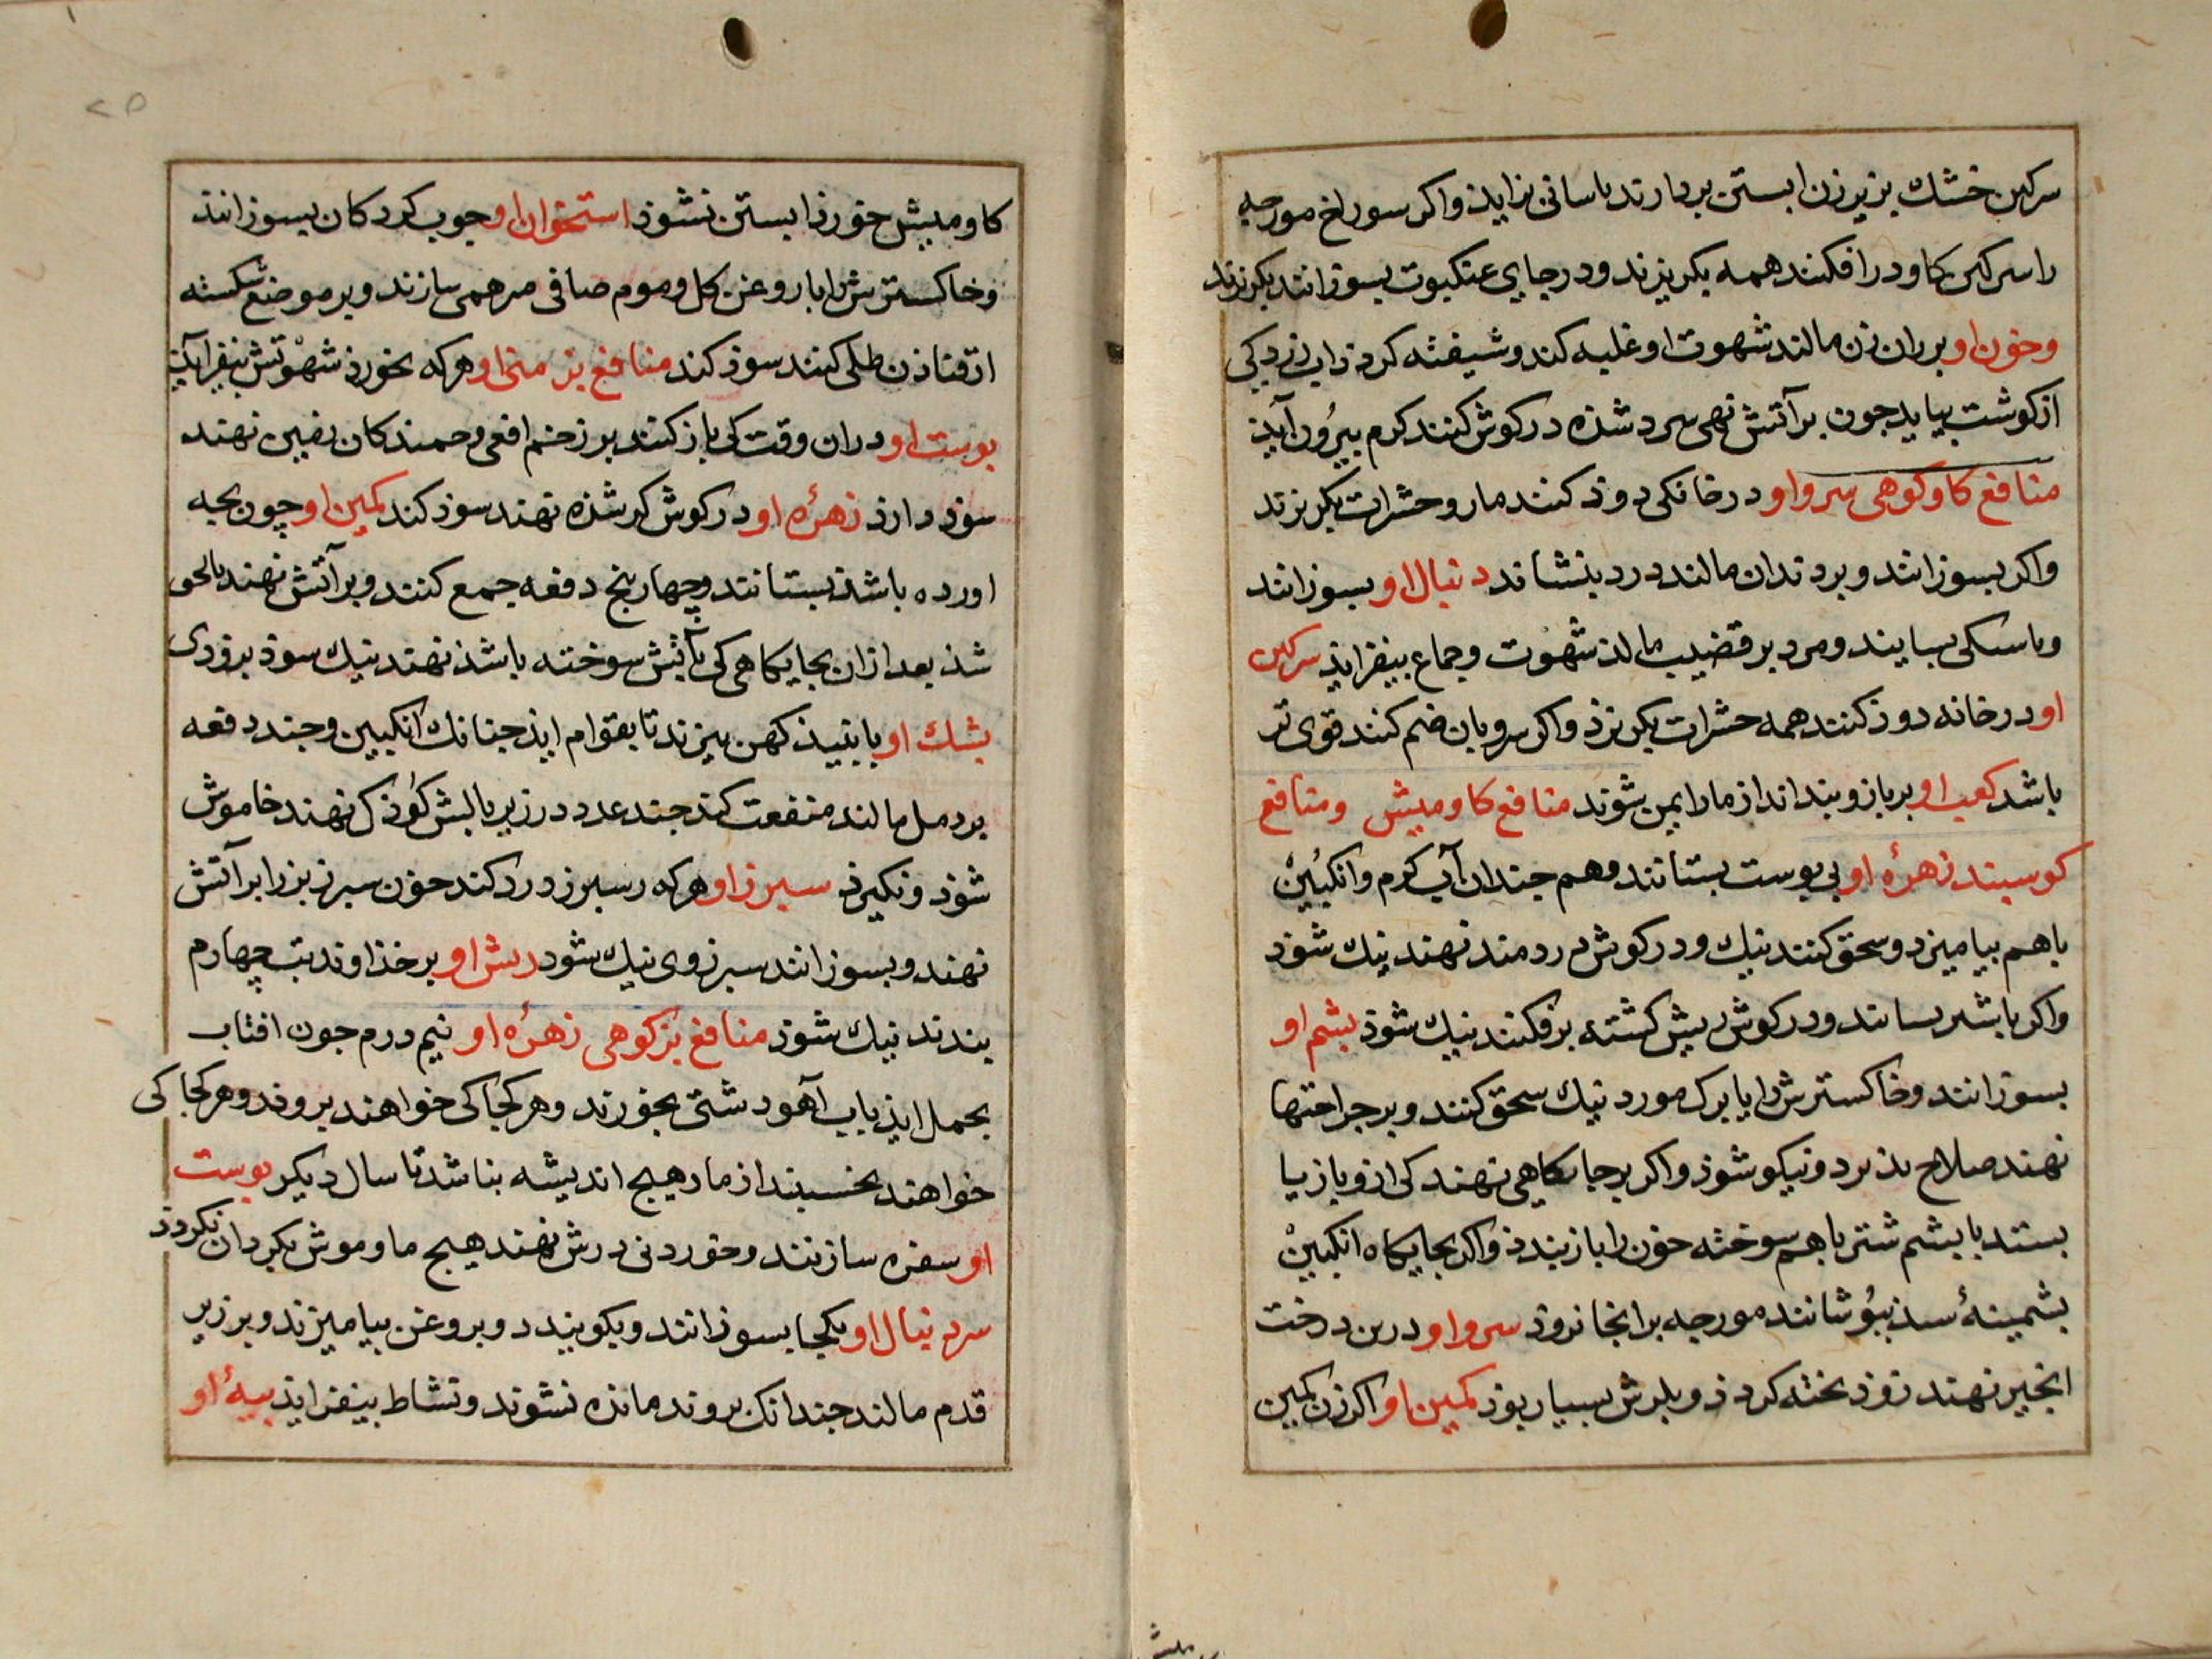 سرکین خشک بزیر زن ابستن بردارند باسانی بزاید واکر سوراخ مورجه
را سرکین کاو درافکنند همه بکریزند ودر جایی عنکبوت بسوزانند بکریزند
وخون او بران زن مالند شهوت او غلبه کند وشیفته کردد
ازکوشت بیاید جون برآتش نهی سرد شذه درکوش کنند کرم بیرون آید
منافع کاوکوهی سرو او درخانکی دوذ کنند مار وحشرات بکریزند
واکر بسوزانند وبردندان مالند درد بنشاند دنبال او بسوزانند
وباسکی بسایند ومرد برقضیب مالذ شهوت وجماع بیفزایذ سرکین
او درخانه دوذ کنند همه حشرات بکریزذ واکر سرو بان ضم کنند قوی تر
باشد کعب او بربازو بندند از مار ایمن شوند منافع کاومیش ومنافع
کوسبند زهرۀ او بی پوست بستانند وهم جندان آب کرم وانکبین
باهم بیامیزد وسحق کنند نیک ودرکوش دردمند نهند نیک شوذ
واکر باشیر بسانند ودرکوش ریش کشته برفکنند نیک شوذ بشم او
بسوزانند وخاکسترش را با برک مورد نیک سحق کنند وبر جراحتها
نهند صلاح بذیرد ونیکو شوذ واکر برجایکاهی نهند کی ازو باز بیا
بستد با بشم شتر باهم سوخته خون را باز بندذ واکر بجایکاه انکبین
بشمینۀ سبذ ببوشانند مورجه برانجا نروذ سرو او درین درخت
انجیر نهند زوذ بخته کردذ وبارش بسیار بوذ کمین او اکر زن کمین
کاومیش خورد ابستن نشوذ استخوان او جوب کردکان بسوزانند
وخاکسترش را با روغن کل وموم صافی مرهمی سازند وبر موضع شکسته
طلی کنند سوذ کند منافع بز منی او هرکه بخورذ شهوتش بیفزاید
بوست او دران وقت کی باز کنند بر زخم افعی نهند
سوذ دارذ زهرۀ او درکوش کرشذه نهند سوذ کند کمین او چون بجه
اورده باشذ بستانند وچهار پنج دفعه جمع کنند وبرآتش نهند
شذ بعد ازان بجایکاهی کی بآتش سوخته باشذ نهند نیک سوذ بزودی
بشک او با نبیذ کهن بیزند تا بقوام ایذ جنانک انکبین وجند دفعه
بردمل مالند منفعت کند جند عدد درزیر بالش کوذک نهند خاموش
شوذ ونکیرذ سبرز او هرکه رسبرز درد کند خون سبرز بز را برآتش
نهند وبسوزانند سبرز وی نیک شود ریش او برخذاوند تب چهارم
بندند نیک شوذ منافع بزکوهی زهرۀ او نیم درم جون افتاب
بحمل ایذ باب آهو دشتی بخورند وهرکجا کی خواهند بروند وهرکجا کی
خواهند بخسبند از مار هیج اندیشه بناشد تا سال دیکر بوست
او سفره سازنند وخوردنی درش نهند هیج مار وموش بکردان نکردذ
سر دنبال او بکجا بسوزانند وبکوبیدد وبروغن بیامیزند وبرزیر
قدم مالند جندانک بروند مانذه نشوند ونشاط بیفزایذ بیۀ او